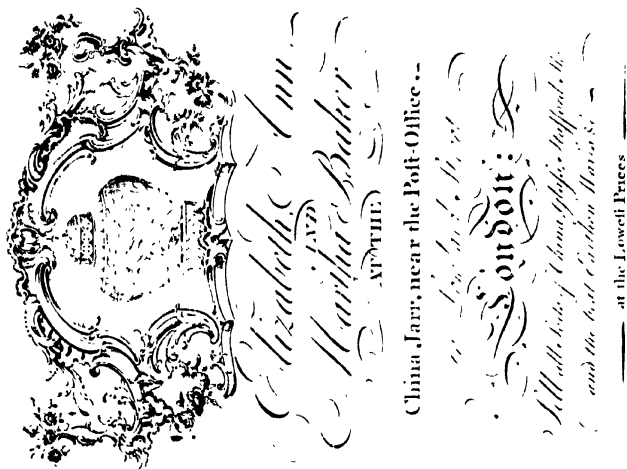 Elizabeth, Ann
AND
Martha Baker
AT THE
China Jarr, near the Post-Office
London:
Sell all sorts of China, glass,
and the best Earthen Wares &c
at the Lowest Prices